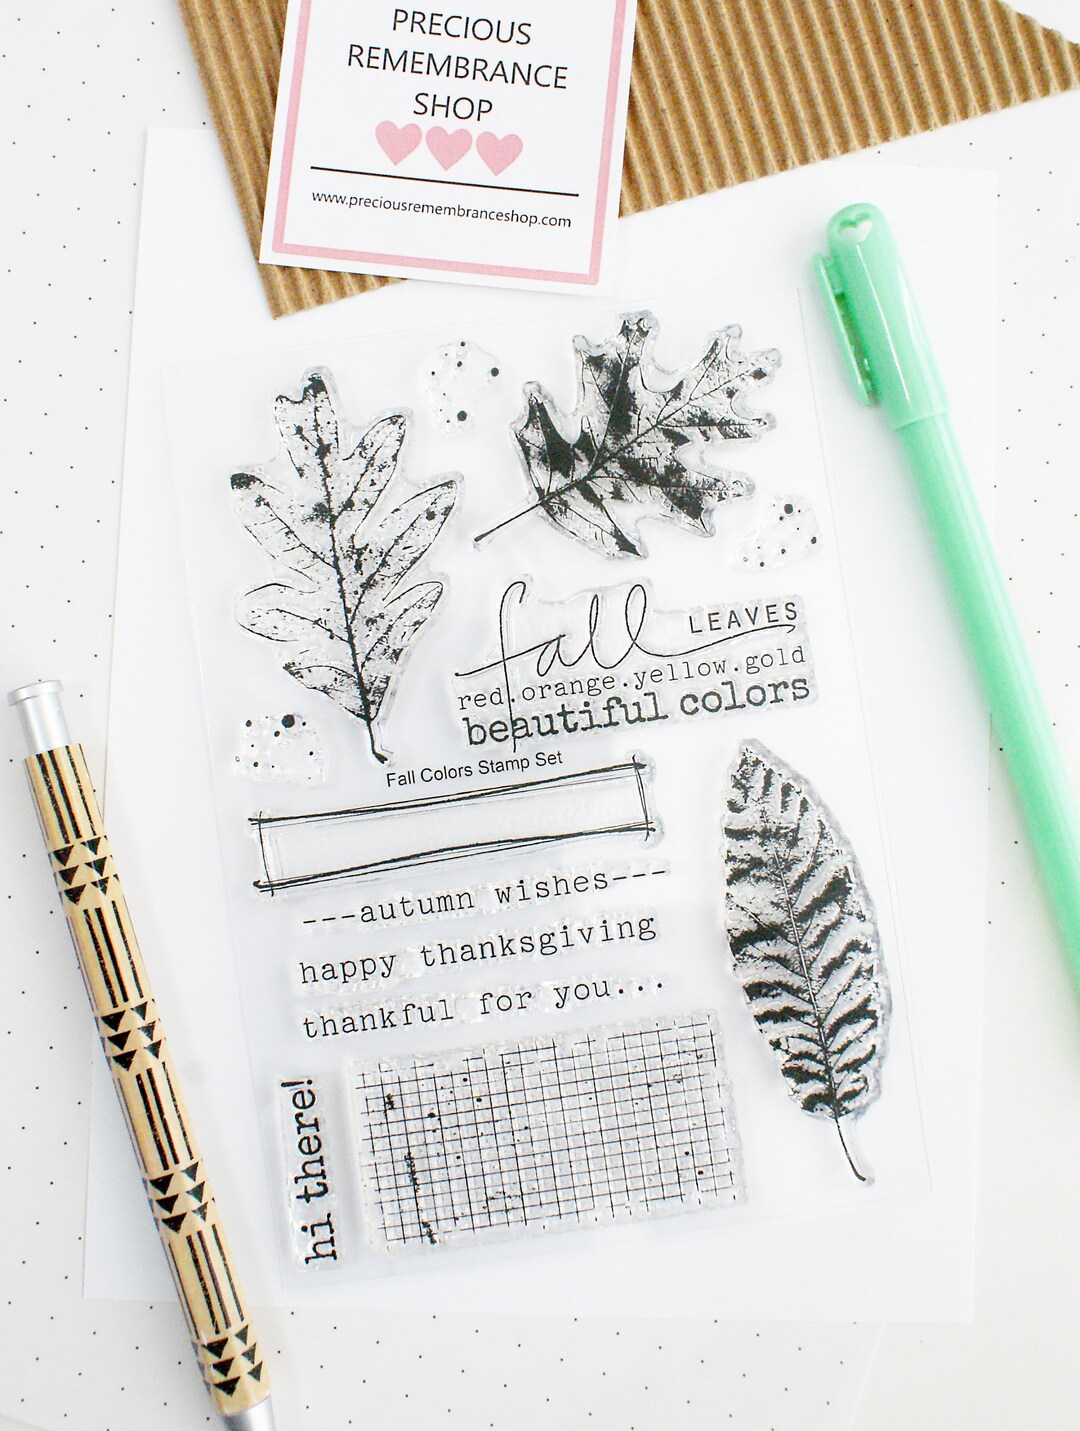 PRECIOUS
REMEMBRANCE
SHOP
www.preciousremembranceshop.com
fall LEAVES
red.orange.yellow.gold
beautiful colors
Fall Colors Stamp Set
---autumn wishes---
happy thanksgiving
thankful for you...
hi there!